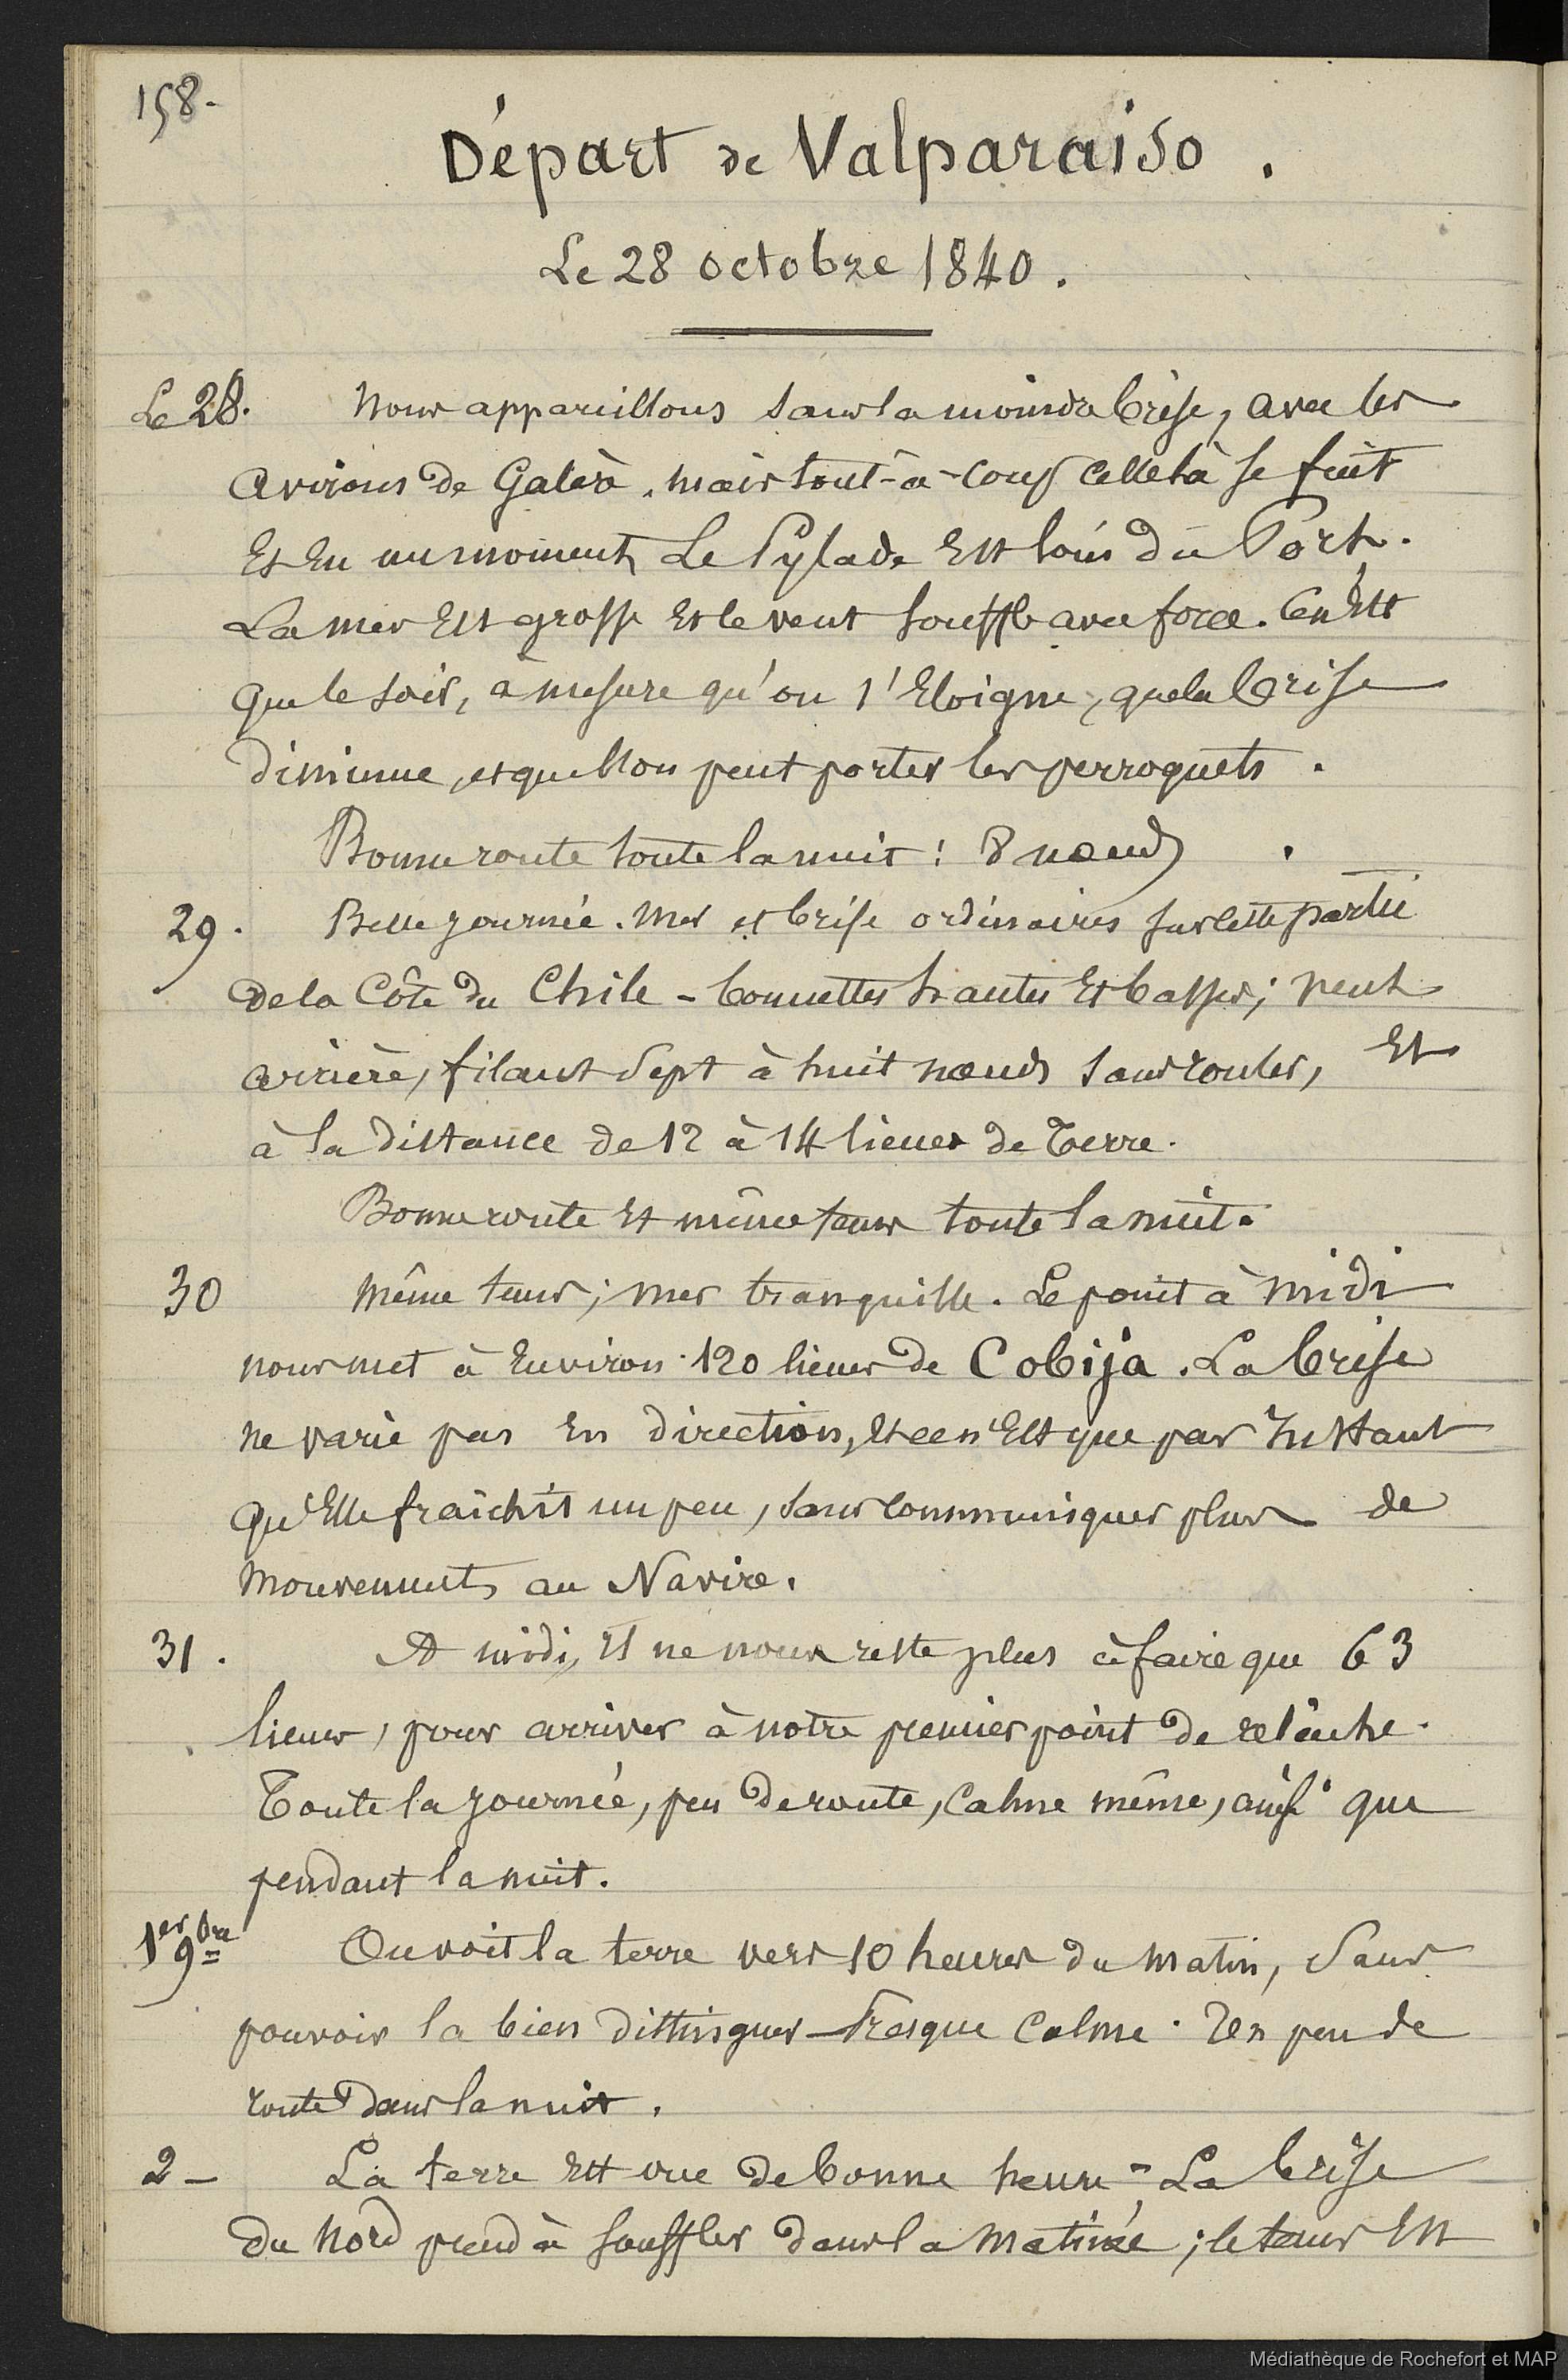 158.
Départ de Valparaiso.
Le 28 octobre 1840.
Le 28. Nous appareillons sans la moindre brise, avec les
avirons de Galère, mais tout-à-coup celle là se fait
Et En un moment Le Pylade Est loin du Port.
La mer Est grosse Et le vent souffle avec force. Ce n'Est
que le soir, à mesure qu'on s'Eloigne, que la brise
diminue, et que l'on peut porter les perroquets.
Bonne route toute la nuit : 8 nœuds.
29. Belle journée. Mer et brise ordinaires sur cette partie
de la Côte du Chile - bonnettes hautes Et basses; vent
arrière, filant sept à huit nœuds sans rouler, Et
à la distance de 12 à 14 lieues de Terre.
Bonne route Et même tems toute la nuit.
30 Même tems; mer tranquille. Le point à midi
nous met à Environ 120 lieues de Cobija. La brise
ne varie pas En direction, Et ce n'Est que par Instant
qu'Elle fraîchit un peu, sans communiquer plus de
mouvements au Navire.
31. A midi, Il ne nous reste plus à faire que 63
lieues, pour arriver à notre premier point de relâche.
Toute la journée, peu de route, calme même, ainsi que
pendant la nuit.
1er 9bre On voit la terre vers 10 heures du matin, sans
pouvoir la bien distinguer - Presque calme. Un peu de
route dans la nuit.
2 - La terre Est vue de bonne heure - La brise
du Nord prend à souffler dans la matinée; le tems Est
Médiathèque de Rochefort et MAP